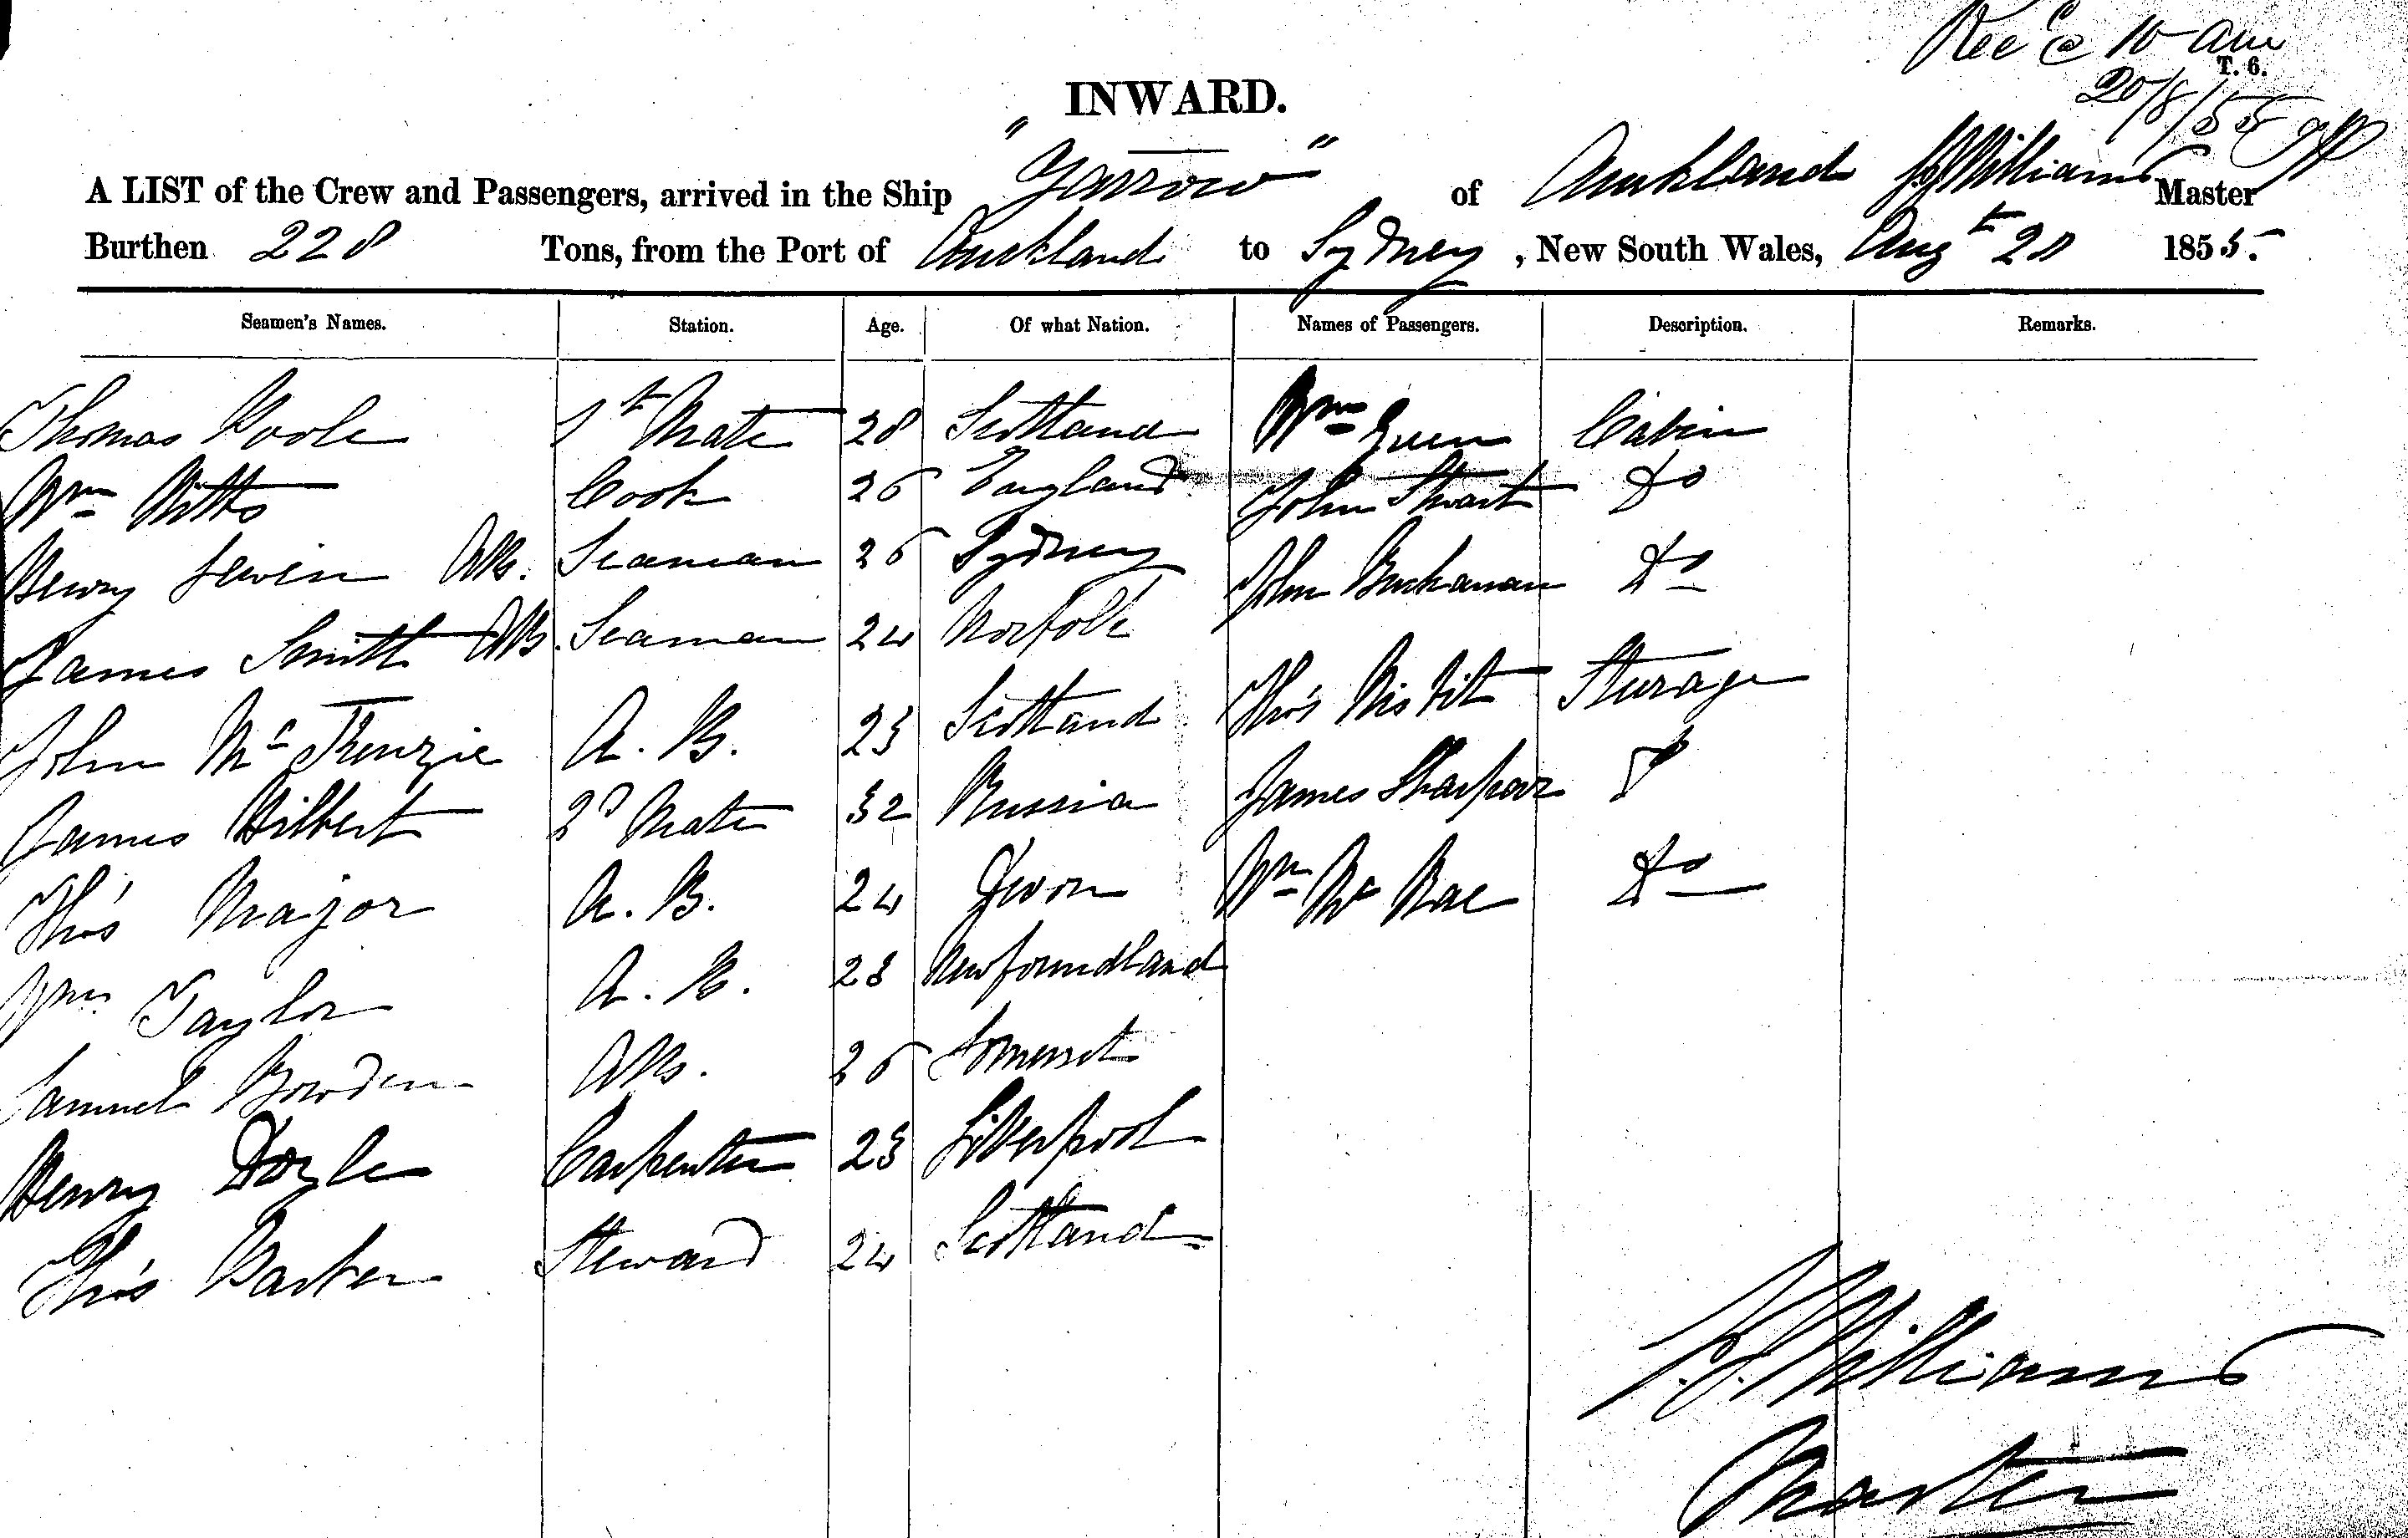 Rec'd @ 10 am
T. 6.
20/8/55
INWARD.
A LIST of the Crew and Passengers, arrived in the Ship "Yarrow" of Auckland Williams Master
Burthen 228 Tons, from the Port of Auckland to Sydney, New South Wales, Augt 20 1855.
Seamen's Names. Station. Age. Of what Nation. Names of Passengers. Description. Remarks.
Thomas Poole 1st Mate 28 Scotland Wm Green Cabin
Wm Pitts Cook 26 England John Stuart Do
Henry Lewin AB. Seaman 26 Sydney John Buchanan Do
James Smith AB. Seaman 24 Norfolk
John McKenzie A. B. 23 Scotland Thos Nisbit Sturage
James Hilbert 2d Mate 32 Russia James Do
Thos Major A. B. 24 Devon Wm Mc Rae Do
Wm Taylor A. B. 23 Newfoundland
Samuel Bowden AB. 26 Somerset
Henry Doyle Carpenter 23 Liverpool
Thos Barker Steward 24 Scotland
Williams
Master